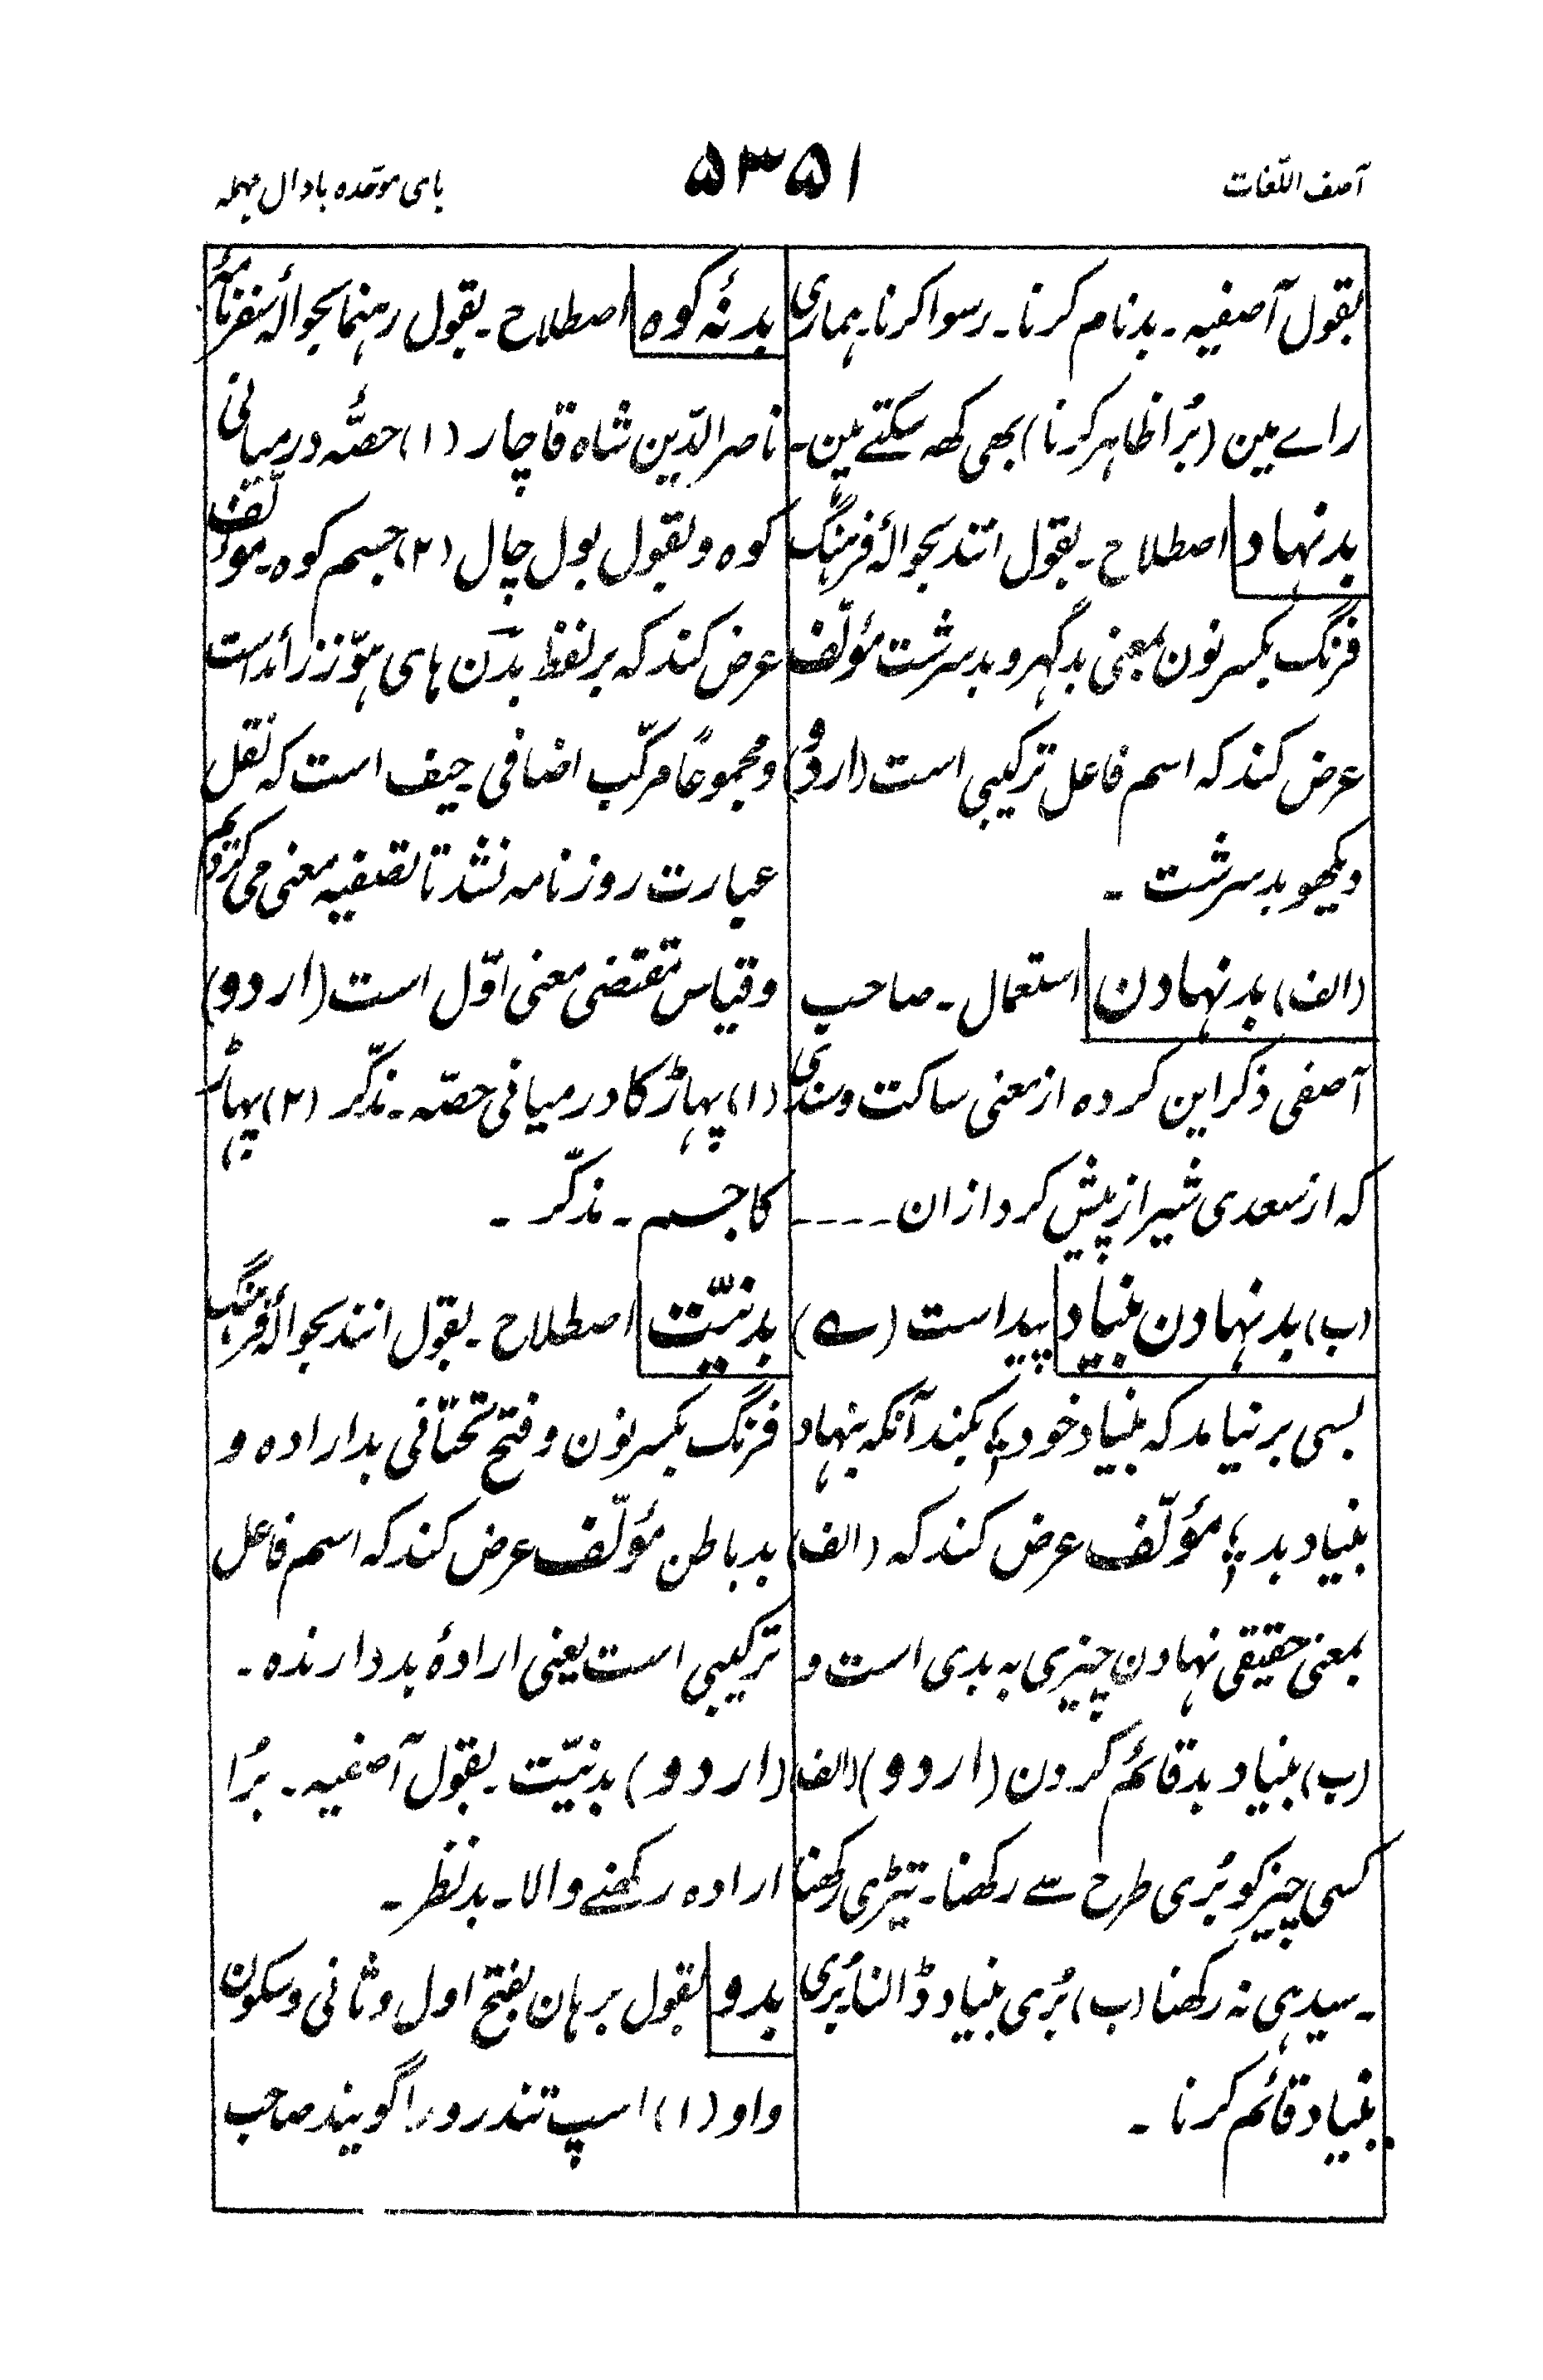 آصف اللغات
۵۳۵۱
بای موحده با دال مهمله
بقول آصفیہ ۔ بدنام کرنا ۔ رسوا کرنا ۔ ہماری
راے مین (بُرا ظاہر کرنا) بھی کہہ سکتے ہین ۔
بدنہاد اصطلاح ۔ بقول انند بحوالۂ فرہنگ
فرنگ بکسر نون بمعنی بدگہر و بدسرشت مؤلّف
عرض کند کہ اسم فاعل ترکیبی است (اردو)
دیکھو بدسرشت ۔
(الف) بدنہادن استعمال ۔ صاحب
آصفی ذکر این کردہ از معنی ساکت و سندی
کہ از سعدی شیراز پیش کرد ازان ۔۔۔۔
(ب) بدنہادن بنیاد پیداست (ے)
بسی برنیامد کہ بنیاد خود ؛ بکند آنکہ بنہاد
بنیاد بد ؛؛ مؤلّف عرض کند کہ (الف)
بمعنی حقیقی نہادن چیزی بہ بدی است و
(ب) بنیاد بد قائم کردن (اردو) (الف)
کسی چیز کو بُری طرح سے رکھنا ۔ تیڑی رکھنا
۔ سیدہی نہ رکھنا (ب) بُری بنیاد ڈالنا ۔ بُری
بنیاد قائم کرنا ۔
بدنۂ کوہ اصطلاح ۔ بقول رہنما بحوالۂ سفرنامۂ
ناصر الدّین شاہ قاچار (۱) حصّہ درمیانی
کوہ و بقول بول چال (۲) جسم کوہ ۔ مؤلّف
عرض کند کہ بر لفظ بدن ہای ہوّز زائد است
و مجموعاً مرکّب اضافی ۔ حیف است کہ نقل
عبارت روزنامہ نشد تا تصفیہ معنی می کردیم
و قیاس مقتضی معنی اوّل است (اردو)
(۱) پہاڑ کا درمیانی حصّہ ۔ مذکّر (۲) پہاڑ
کا جسم ۔ مذکّر ۔
بدنیّت اصطلاح ۔ بقول انند بحوالۂ فرہنگ
فرنگ بکسر نون و فتح تحتّانی بدارادہ و
بدباطن مؤلّف عرض کند کہ اسم فاعل
ترکیبی است یعنی ارادۂ بد دارندہ ۔
(اردو) بدنیّت ۔ بقول آصفیہ ۔ بُرا
ارادہ رکھنے والا ۔ بدنظر ۔
بدو بقول برہان بفتح اول و ثانی و سکون
واو (۱) اسپ تندرو را گویند صاحب